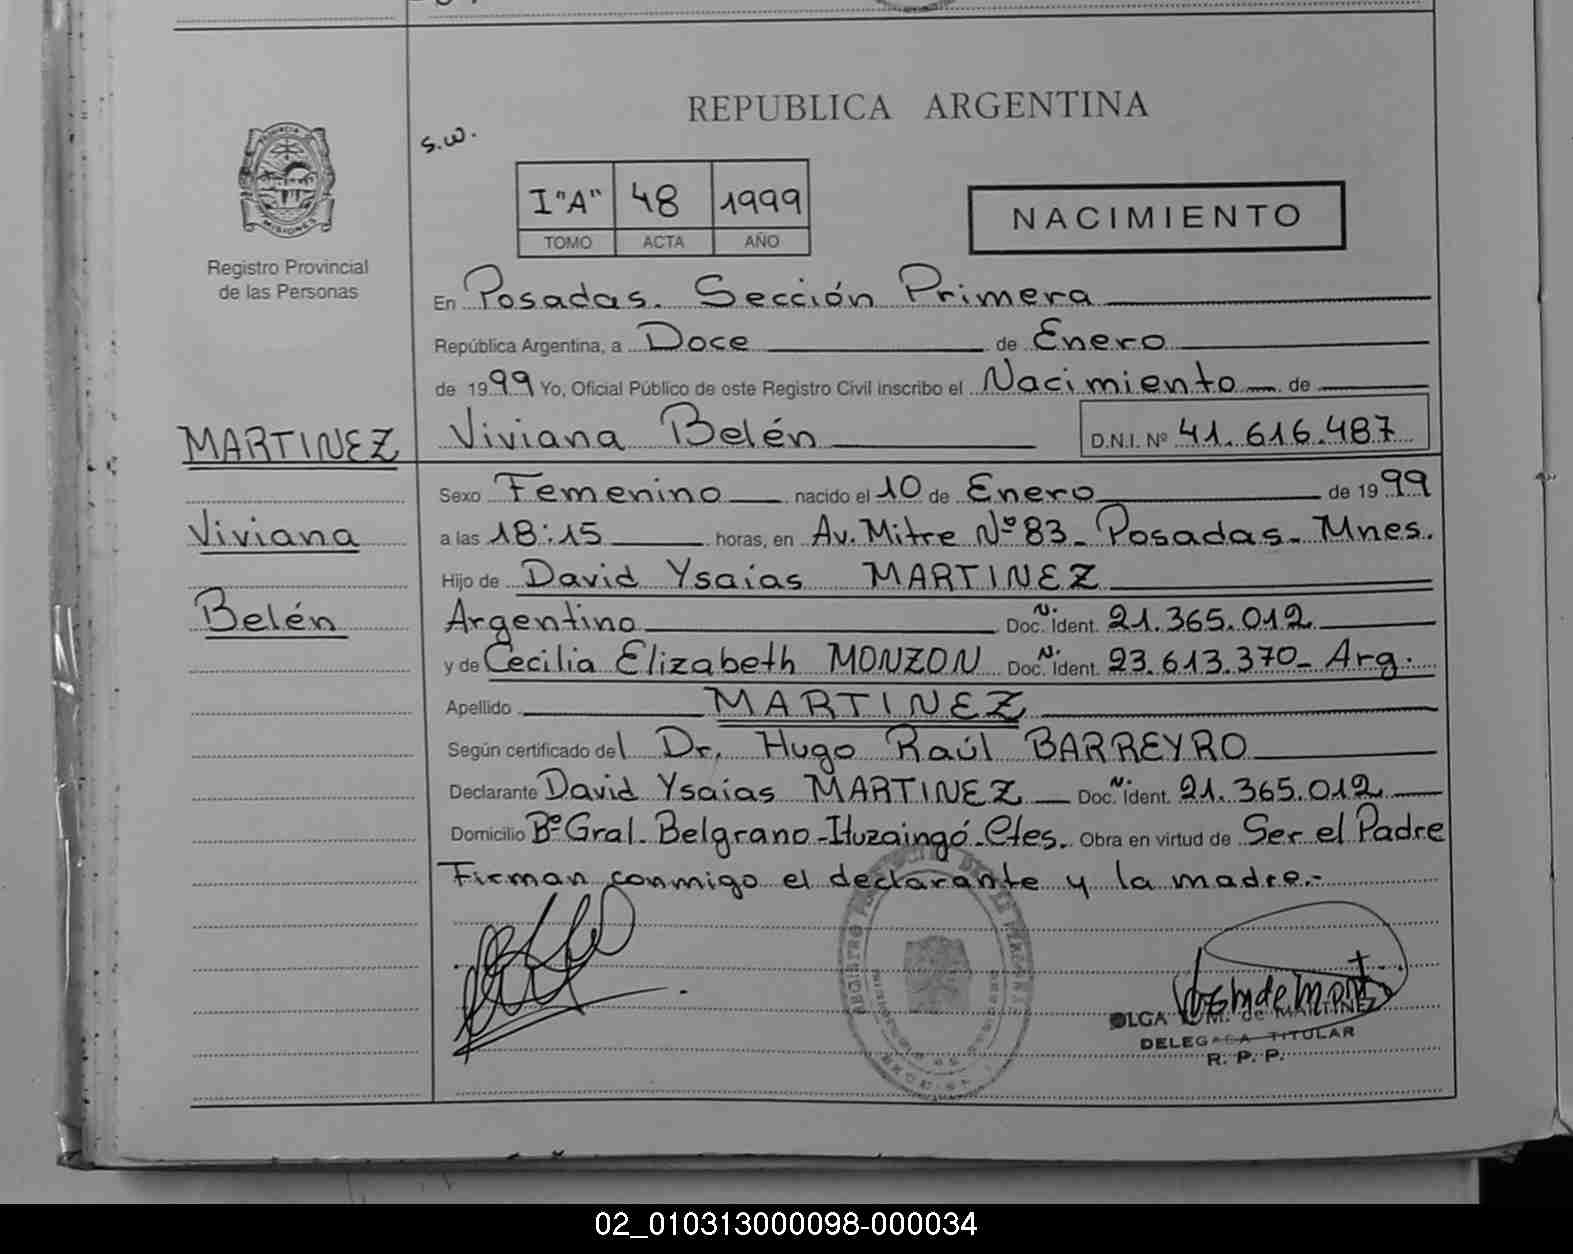 REPUBLICA ARGENTINA
s.w.
I"A" 48 1999
TOMO ACTA AÑO
NACIMIENTO
PROVINCIA DE
MISIONES
Registro Provincial
de las Personas
En Posadas. Sección Primera
República Argentina, a Doce de Enero
de 1999 Yo, Oficial Público de este Registro Civil inscribo el Nacimiento de
Viviana Belén D.N.I. Nº 41.616.487
MARTINEZ
Viviana
Belén
Sexo Femenino nacido el 10 de Enero de 1999
a las 18:15 horas, en Av. Mitre Nº 83- Posadas- Mnes.
Hijo de David Ysaías MARTINEZ
Argentino Doc. N. Ident. 21.365.012
y de Cecilia Elizabeth MONZON Doc. N. Ident. 23.613.370- Arg.
Apellido MARTINEZ
Según certificado del Dr. Hugo Raúl BARREYRO
Declarante David Ysaias MARTINEZ Doc. N. Ident. 21.365.012
Domicilio Bº Gral. Belgrano-Ituzaingó-Ctes. Obra en virtud de Ser el Padre
Firman conmigo el declarante y la madre.-
OLGA M. de MARTINEZ
DELEGADA TITULAR
R. P. P.
02_010313000098-000034